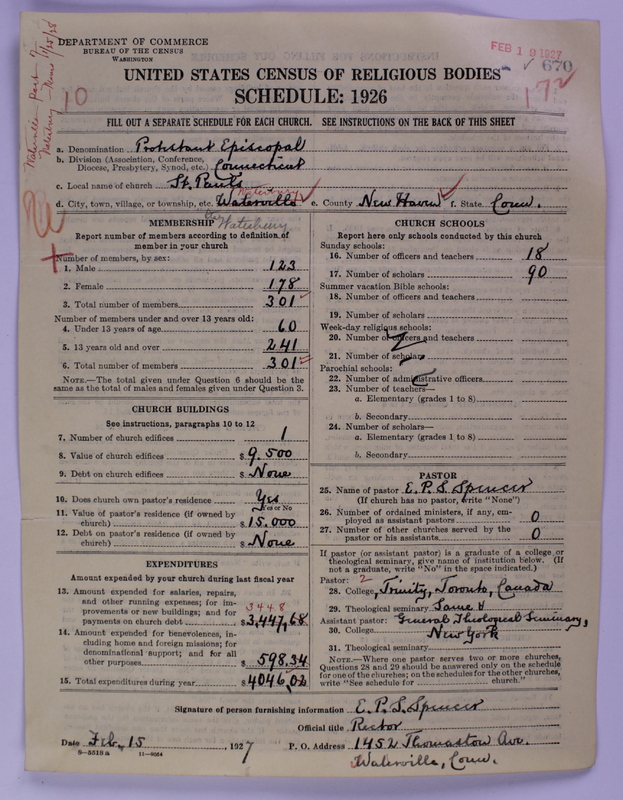 DEPARTMENT OF COMMERCE
BUREAU OF THE CENSUS
WASHINGTON
FEB 19 1927
670
172
10
UNITED STATES CENSUS OF RELIGIOUS BODIES
SCHEDULE: 1926
FILL OUT A SEPARATE SCHEDULE FOR EACH CHURCH. SEE INSTRUCTIONS ON THE BACK OF THIS SHEET
a. Denomination Protestant Episcopal
b. Division (Association, Conference,
Diocese, Presbytery, Synod, etc.) Connecticut
c. Local name of church St. Paul's
Waterbury
d. City, town, village, or township, etc. Waterville e. County New Haven f. State Conn.
Waterbury
MEMBERSHIP
Report number of members according to definition of
member in your church
Number of members, by sex:
1. Male 123
2. Female 178
3. Total number of members 301
Number of members under and over 13 years old:
4. Under 13 years of age 60
5. 13 years old and over 241
6. Total number of members 301
NOTE.—The total given under Question 6 should be the
same as the total of males and females given under Question 3.
CHURCH BUILDINGS
See instructions, paragraphs 10 to 12
7. Number of church edifices 1
8. Value of church edifices $ 9.500
9. Debt on church edifices $ None
10. Does church own pastor's residence Yes
Yes or No
11. Value of pastor's residence (if owned by
church) $ 15.000
12. Debt on pastor's residence (if owned by
church) $ None
EXPENDITURES
Amount expended by your church during last fiscal year
13. Amount expended for salaries, repairs,
and other running expenses; for im-
provements or new buildings; and for
3448
payments on church debt $ 3,447,68
14. Amount expended for benevolences, in-
cluding home and foreign missions; for
denominational support; and for all
other purposes $ 598.34
15. Total expenditures during year $ 4046,02
CHURCH SCHOOLS
Report here only schools conducted by this church
Sunday schools:
16. Number of officers and teachers 18
17. Number of scholars 90
Summer vacation Bible schools:
18. Number of officers and teachers
19. Number of scholars
Week-day religious schools:
20. Number of officers and teachers
21. Number of scholars
Parochial schools:
22. Number of administrative officers
23. Number of teachers—
a. Elementary (grades 1 to 8)
b. Secondary
24. Number of scholars—
a. Elementary (grades 1 to 8)
b. Secondary
PASTOR
25. Name of pastor E. P. S. Spencer
(If church has no pastor, write "None")
26. Number of ordained ministers, if any, em-
ployed as assistant pastors 0
27. Number of other churches served by the
pastor or his assistants 0
If pastor (or assistant pastor) is a graduate of a college or
theological seminary, give name of institution below. (If
not a graduate, write "No" in the space indicated.)
Pastor: 2
28. College Trinity, Toronto, Canada
29. Theological seminary Same &
Assistant pastor: General Theological Seminary,
30. College New York
31. Theological seminary
NOTE.—Where one pastor serves two or more churches,
Questions 28 and 29 should be answered only on the schedule
for one of the churches; on the schedules for the other churches,
write "See schedule for church."
Signature of person furnishing information E. P. S. Spencer
Official title Rector
Date Feb. 15 1927 P. O. Address 1452 Thomaston Ave.
8—5518a 11—9064
Waterville, Conn.